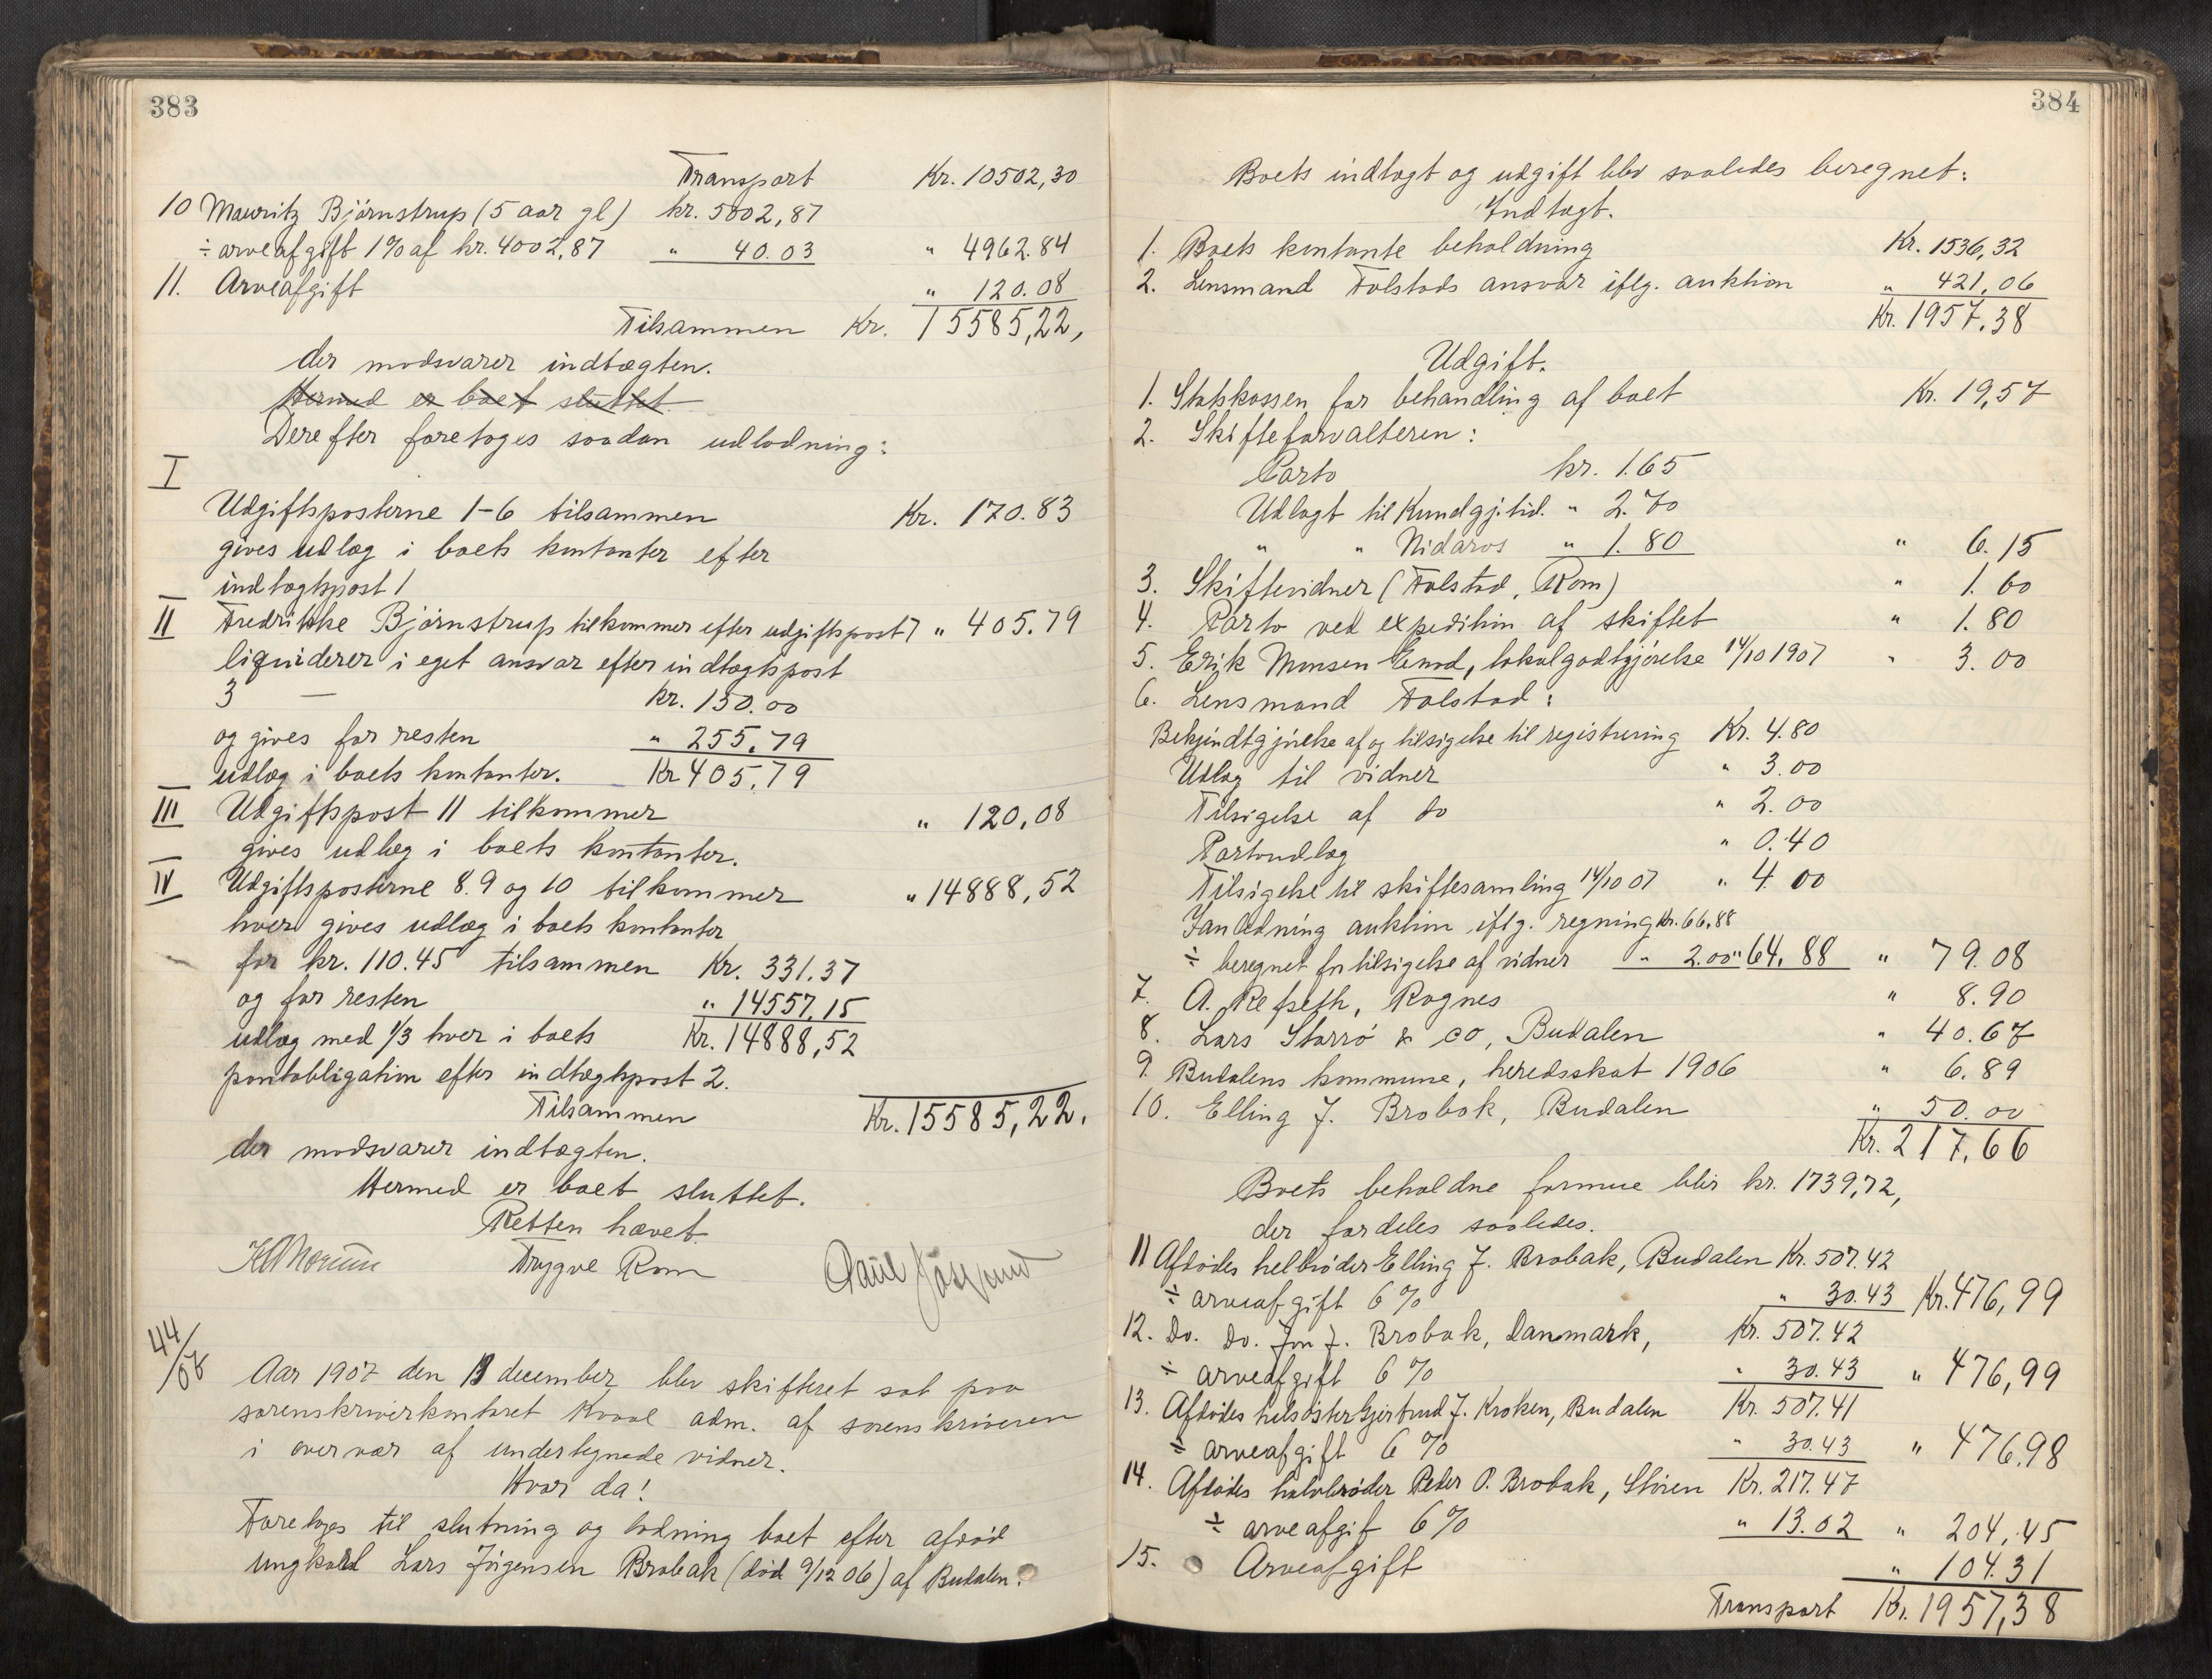 383
Transport Kr. 10502,30
10 Mauritz Bjørnstrup (5 aar gl) kr. 5002,87
÷ arveafgift 1% af kr. 4002,87 " 40.03 " 4962.84
11. Arveafgift " 120.08
Tilsammen Kr. 15585,22,
der modsvarer indtægten.
Hermed er boet sluttet
Derefter foretoges saadan udlodning:
I
Udgiftsposterne 1-6 tilsammen Kr. 170.83
gives udlæg i boets kontanter efter
indtægtspost 1
II Fredrikke Bjørnstrup tilkommer efter udgiftspost 7 " 405.79
liqviderer i eget ansvar efter indtægtspost
3 — kr. 150.00
og gives for resten " 255.79
udlæg i boets kontanter. Kr 405.79
III Udgiftspost 11 tilkommer " 120,08
gives udlæg i boets kontanter.
IV Udgiftsposterne 8. 9 og 10 tilkommer " 14888,52
hver gives udlæg i boets kontanter
for kr. 110.45 tilsammen Kr. 331.37
og for resten " 14557.15
udlæg med 1/3 hver i boets Kr. 14888,52
pantobligation efter indtægtspost 2.
Tilsammen Kr. 15585,22.
der modsvarer indtægten.
Hermed er boet sluttet.
Retten hævet.
Trygve Rom
44/08
Aar 1907 den 13 december blev skifteret sat paa
sorenskriverkontoret Kvaal adm. af sorenskriveren
i overvær af undertegnede vidner.
Hvor da!
Foretoges til slutning og lodning boet efter afdød
ungkarl Lars Jørgensen Brobak (død 9/12 06) af Budalen.
384
Boets indtægt og udgift blev saaledes beregnet:
Indtægt.
1. Boets kontante beholdning Kr. 1536,32
2. Lensmand Folstads ansvar iflg. auktion " 421,06
Kr. 1957.38
Udgift.
1. Statskassen for behandling af boet Kr. 19,57
2. Skifteforvalteren:
Porto kr. 1.65
Udlagt til Kundgj.tid. " 2.70
" " Nidaros " 1.80 " 6.15
3. Skiftevidner (Folstad, Rom) " 1.60
4. Porto ved expedition af skiftet " 1.80
5. Erik Monsen Enod, lokalgodtgjørelse 14/10 1907 " 3.00
6. Lensmand Folstad:
Bekjendtgjørelse af og tilsigelse til registrering Kr. 4.80
Udlæg til vidner " 3.00
Tilsigelse af do " 2.00
Portoudlæg " 0.40
Tilsigelse til skiftesamling 14/10 07 " 4.00
I anledning auktion iflg. regning kr. 66.88
÷ beregnet for tilsigelse af vidner " 2.00 " 64.88 " 79.08
7. A. Refseth, Rognes " 8.90
8. Lars Storrø & co, Budalen " 40.67
9. Budalens kommune, heredsskat 1906 " 6.89
10. Elling J. Brobak, Budalen " 50.00
Kr. 217,66
Boets beholdne formue blir kr. 1739,72,
der fordeles saaledes.
11 Afdødes helbrøder Elling J. Brobak, Budalen Kr. 507.42
÷ arveafgift 6% " 30.43 Kr. 476,99
12. Do. Do. Jon J. Brobak, Danmark, Kr. 507.42
÷ arveafgift 6% " 30.43 " 476,99
13. Afdødes helsøster Gjertrud J. Kroken, Budalen Kr. 507.41
÷ arveafgift 6% " 30.43 " 476.98
14. Afdødes halvbrøder Peder O. Brobak, Støren Kr. 217.47
÷ arveafgift 6% " 13.02 " 204,45
15. Arveafgift " 104.31
Transport Kr. 1957,38